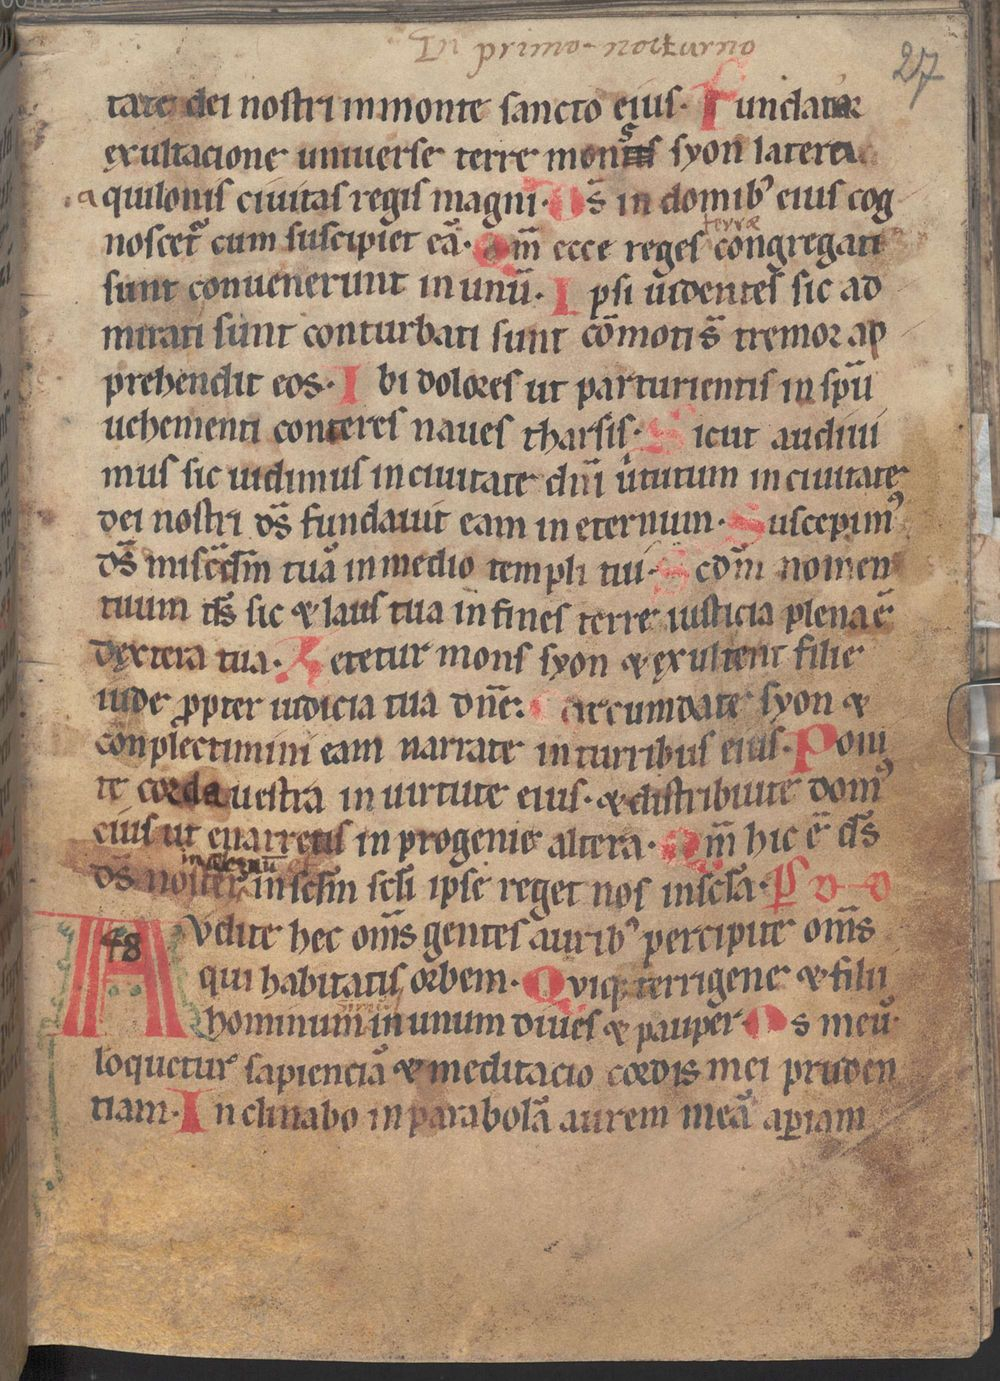 In primo nocturno
27
tate dei nostri in monte sancto eius. Fundatur
exultacione uniuerse terre mons syon latera
aquilonis ciuitas regis magni. Ds̄ in domib᾽ eius cog
noscet᾽ cum suscipiet eā. Qm̄ ecce reges terræ congregati
sunt conuenerunt in unū. Ipsi uidentes sic ad
mirati sunt conturbati sunt cōmoti sّ tremor ap
prehendit eos. Ibi dolores ut parturientis in spū
uehementi conteres naues tharsis. Sicut audiui
mus sic uidimus in ciuitate dnī uͥtutum in ciuitate
dei nostri ds̄ fundauit eam in eternum. Suscepim᾽
ds̄ mis̄cdīm tuā in medio templi tui. Scdm̄ nomen
tuum ds̄ sic & laus tua in fines terre iusticia plena ē
dextera tua. Letetur mons syon & exultent filie
iude ꝓpter iudicia tua dnē. Circumdate syon &
conplectimini eam narrate in turribus eius. Poni
te corda uestra in uirtute eius. & distribuite dom᾽
eius ut enarretis in progenie altera. Qm̄ hic ē ds̄
ds̄ noster in eternū in sclm̄ scli ipse reget nos in scl̄a. Ps D-D
48
Audite hec oms̄ gentes aurib᾽ percipite oms̄
qui habitatis orbem. Quiq; terrigene & filii
hominum simul in unum diues & pauper. Os meū
loquetur sapienciā & meditacio cordis mei pruden
tiam. Inclinabo in parabolā aurem meā aꝑiam